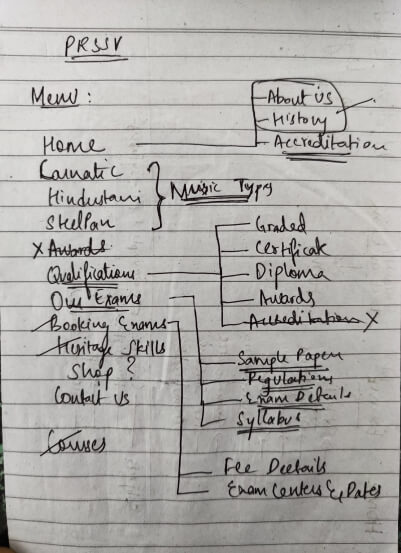 PRSSV
Menu :
About Us
History
Home
Accreditation
Carnatic
Hindustani
Music Types
SteelPan
Graded
X Awards
Certificate
Qualifications
Diploma
Our Exams
Awards
Booking Exams
Accreditations X
Heritage Skills
Sample Papers
Shop ?
Regulations
Contact Us
Exam Details
Syllabus
Courses
Fee Deetails
Exam Centers & Dates